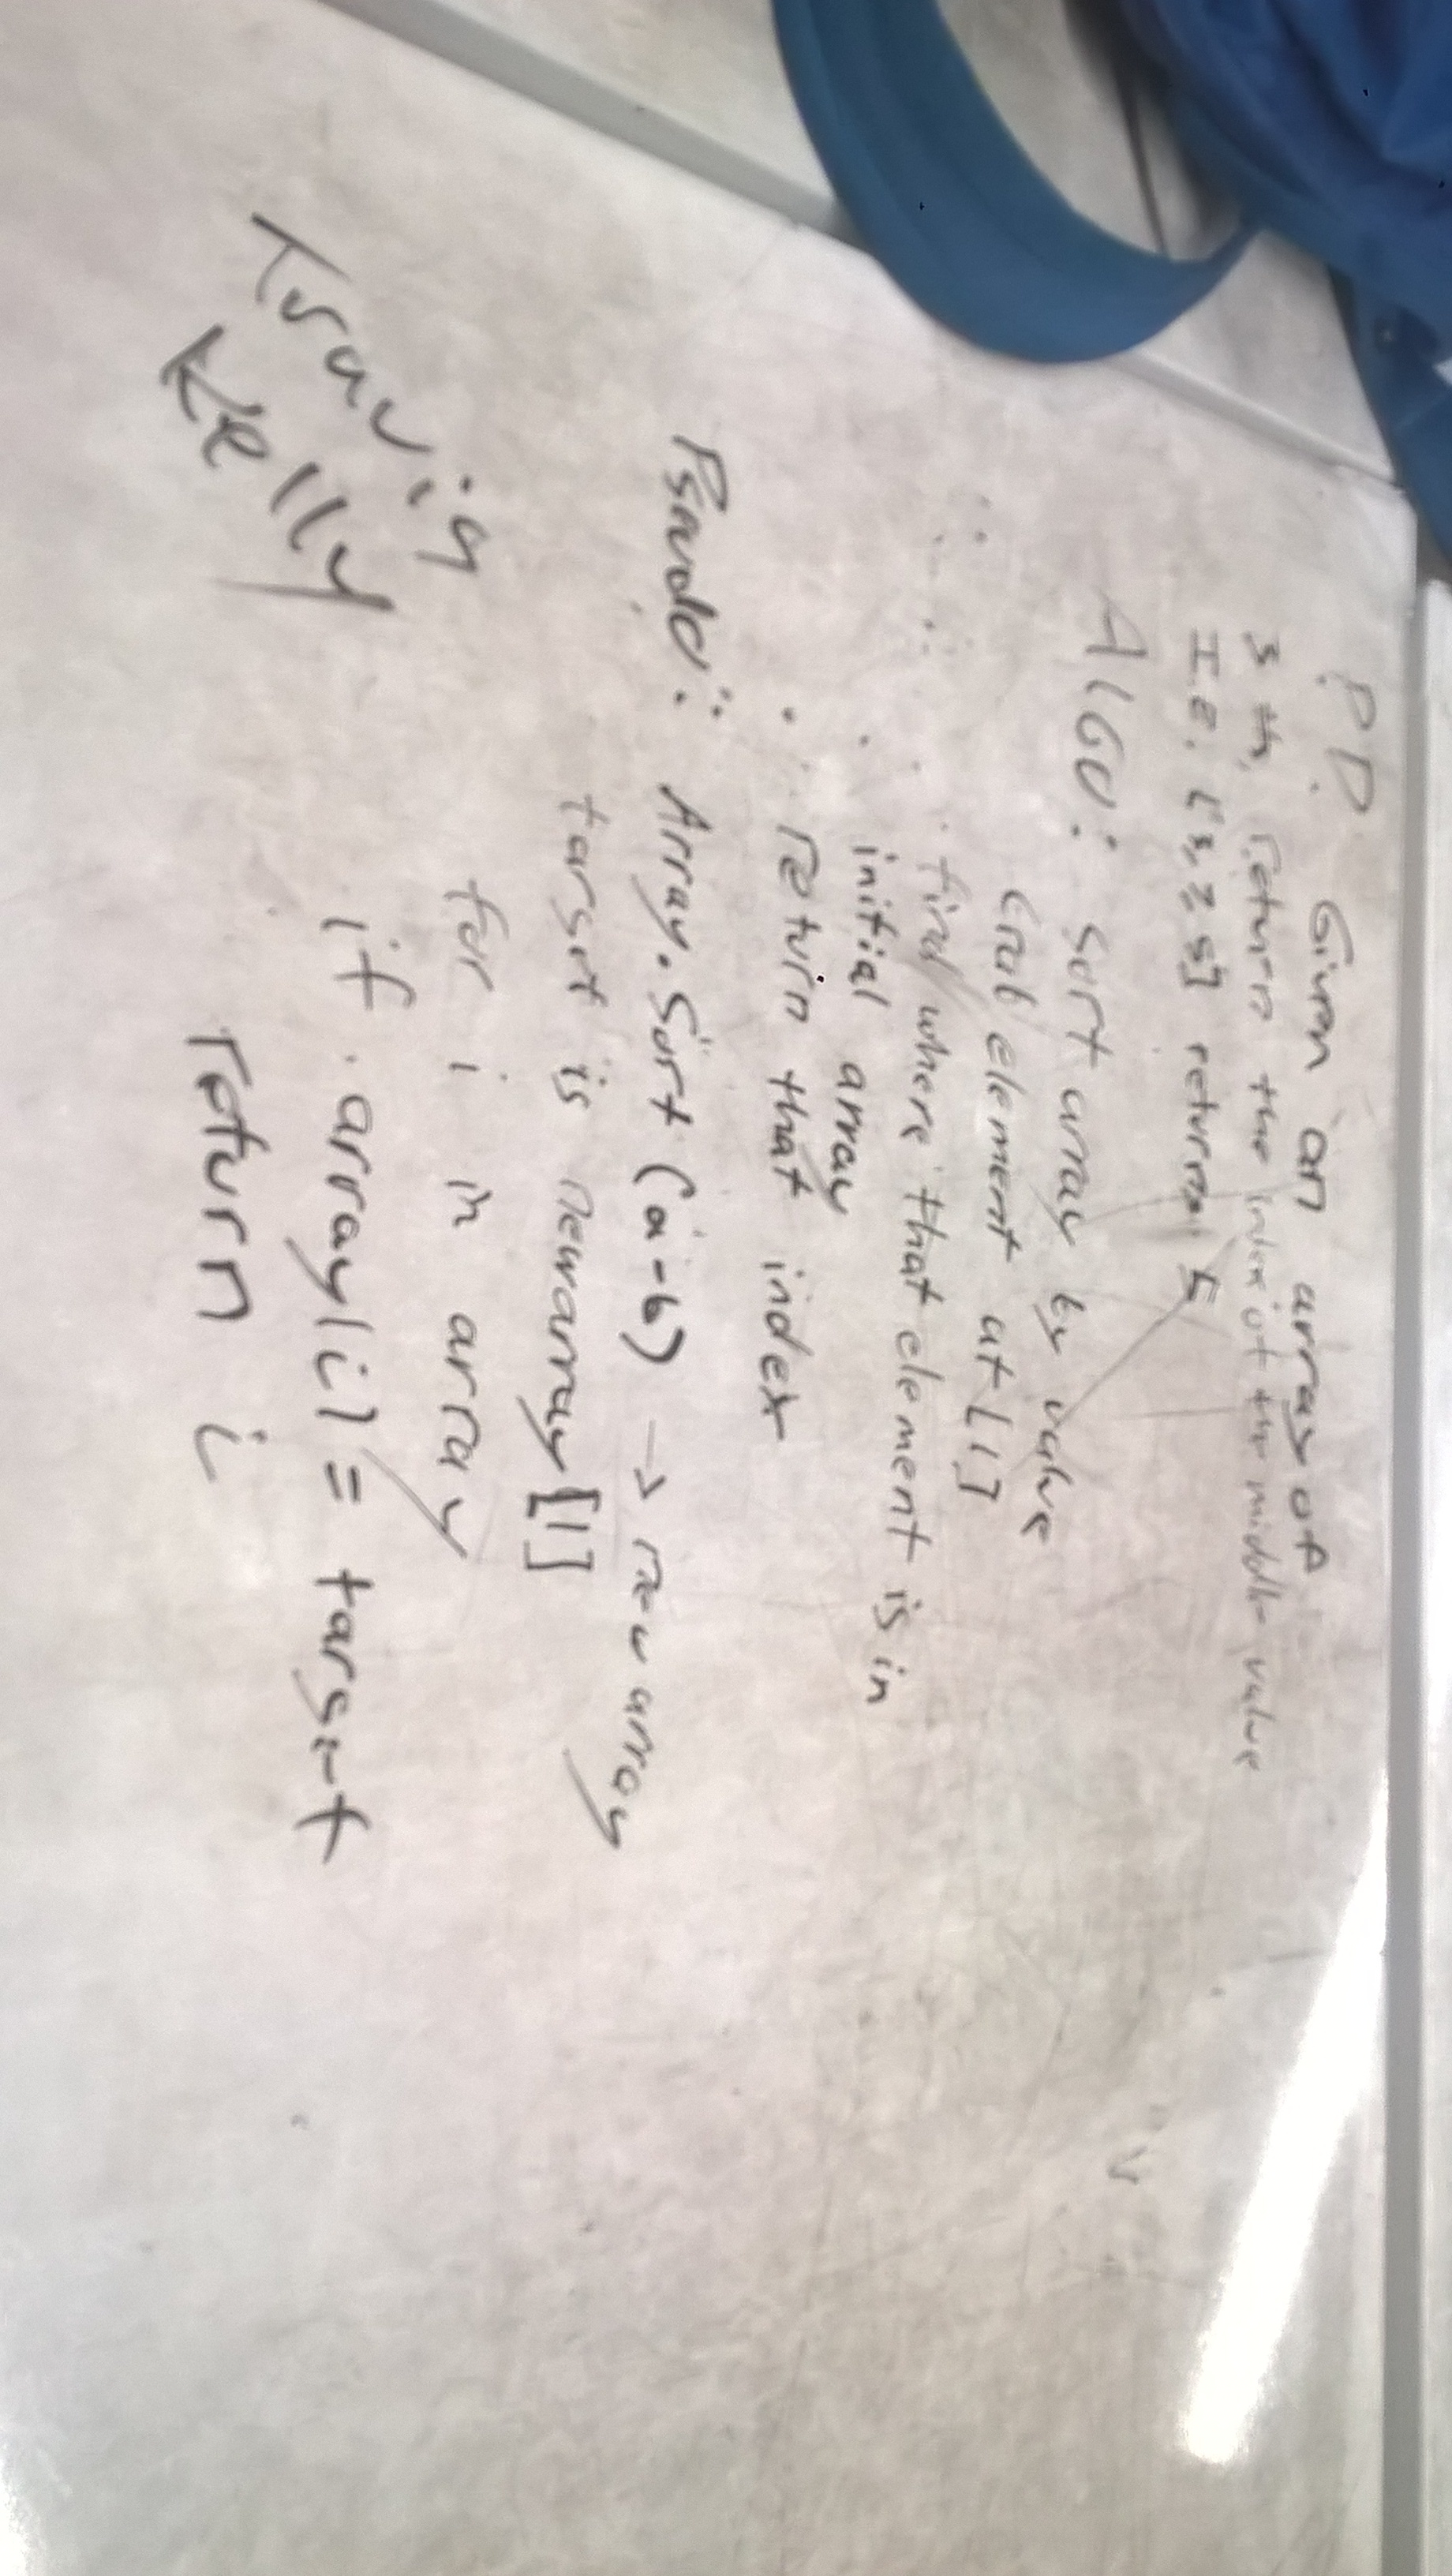 PD. Given an array of
3 #s, return the index of the middle value
I.E. [3, 2 5] returns
AlGO: Sort array by value
Grab element at [1]
find where that element is in
initial array
return that index
Array.Sort (a-b) → new array
target is newarray[1]
for i in array
if array[i] = target
return i
Kelly